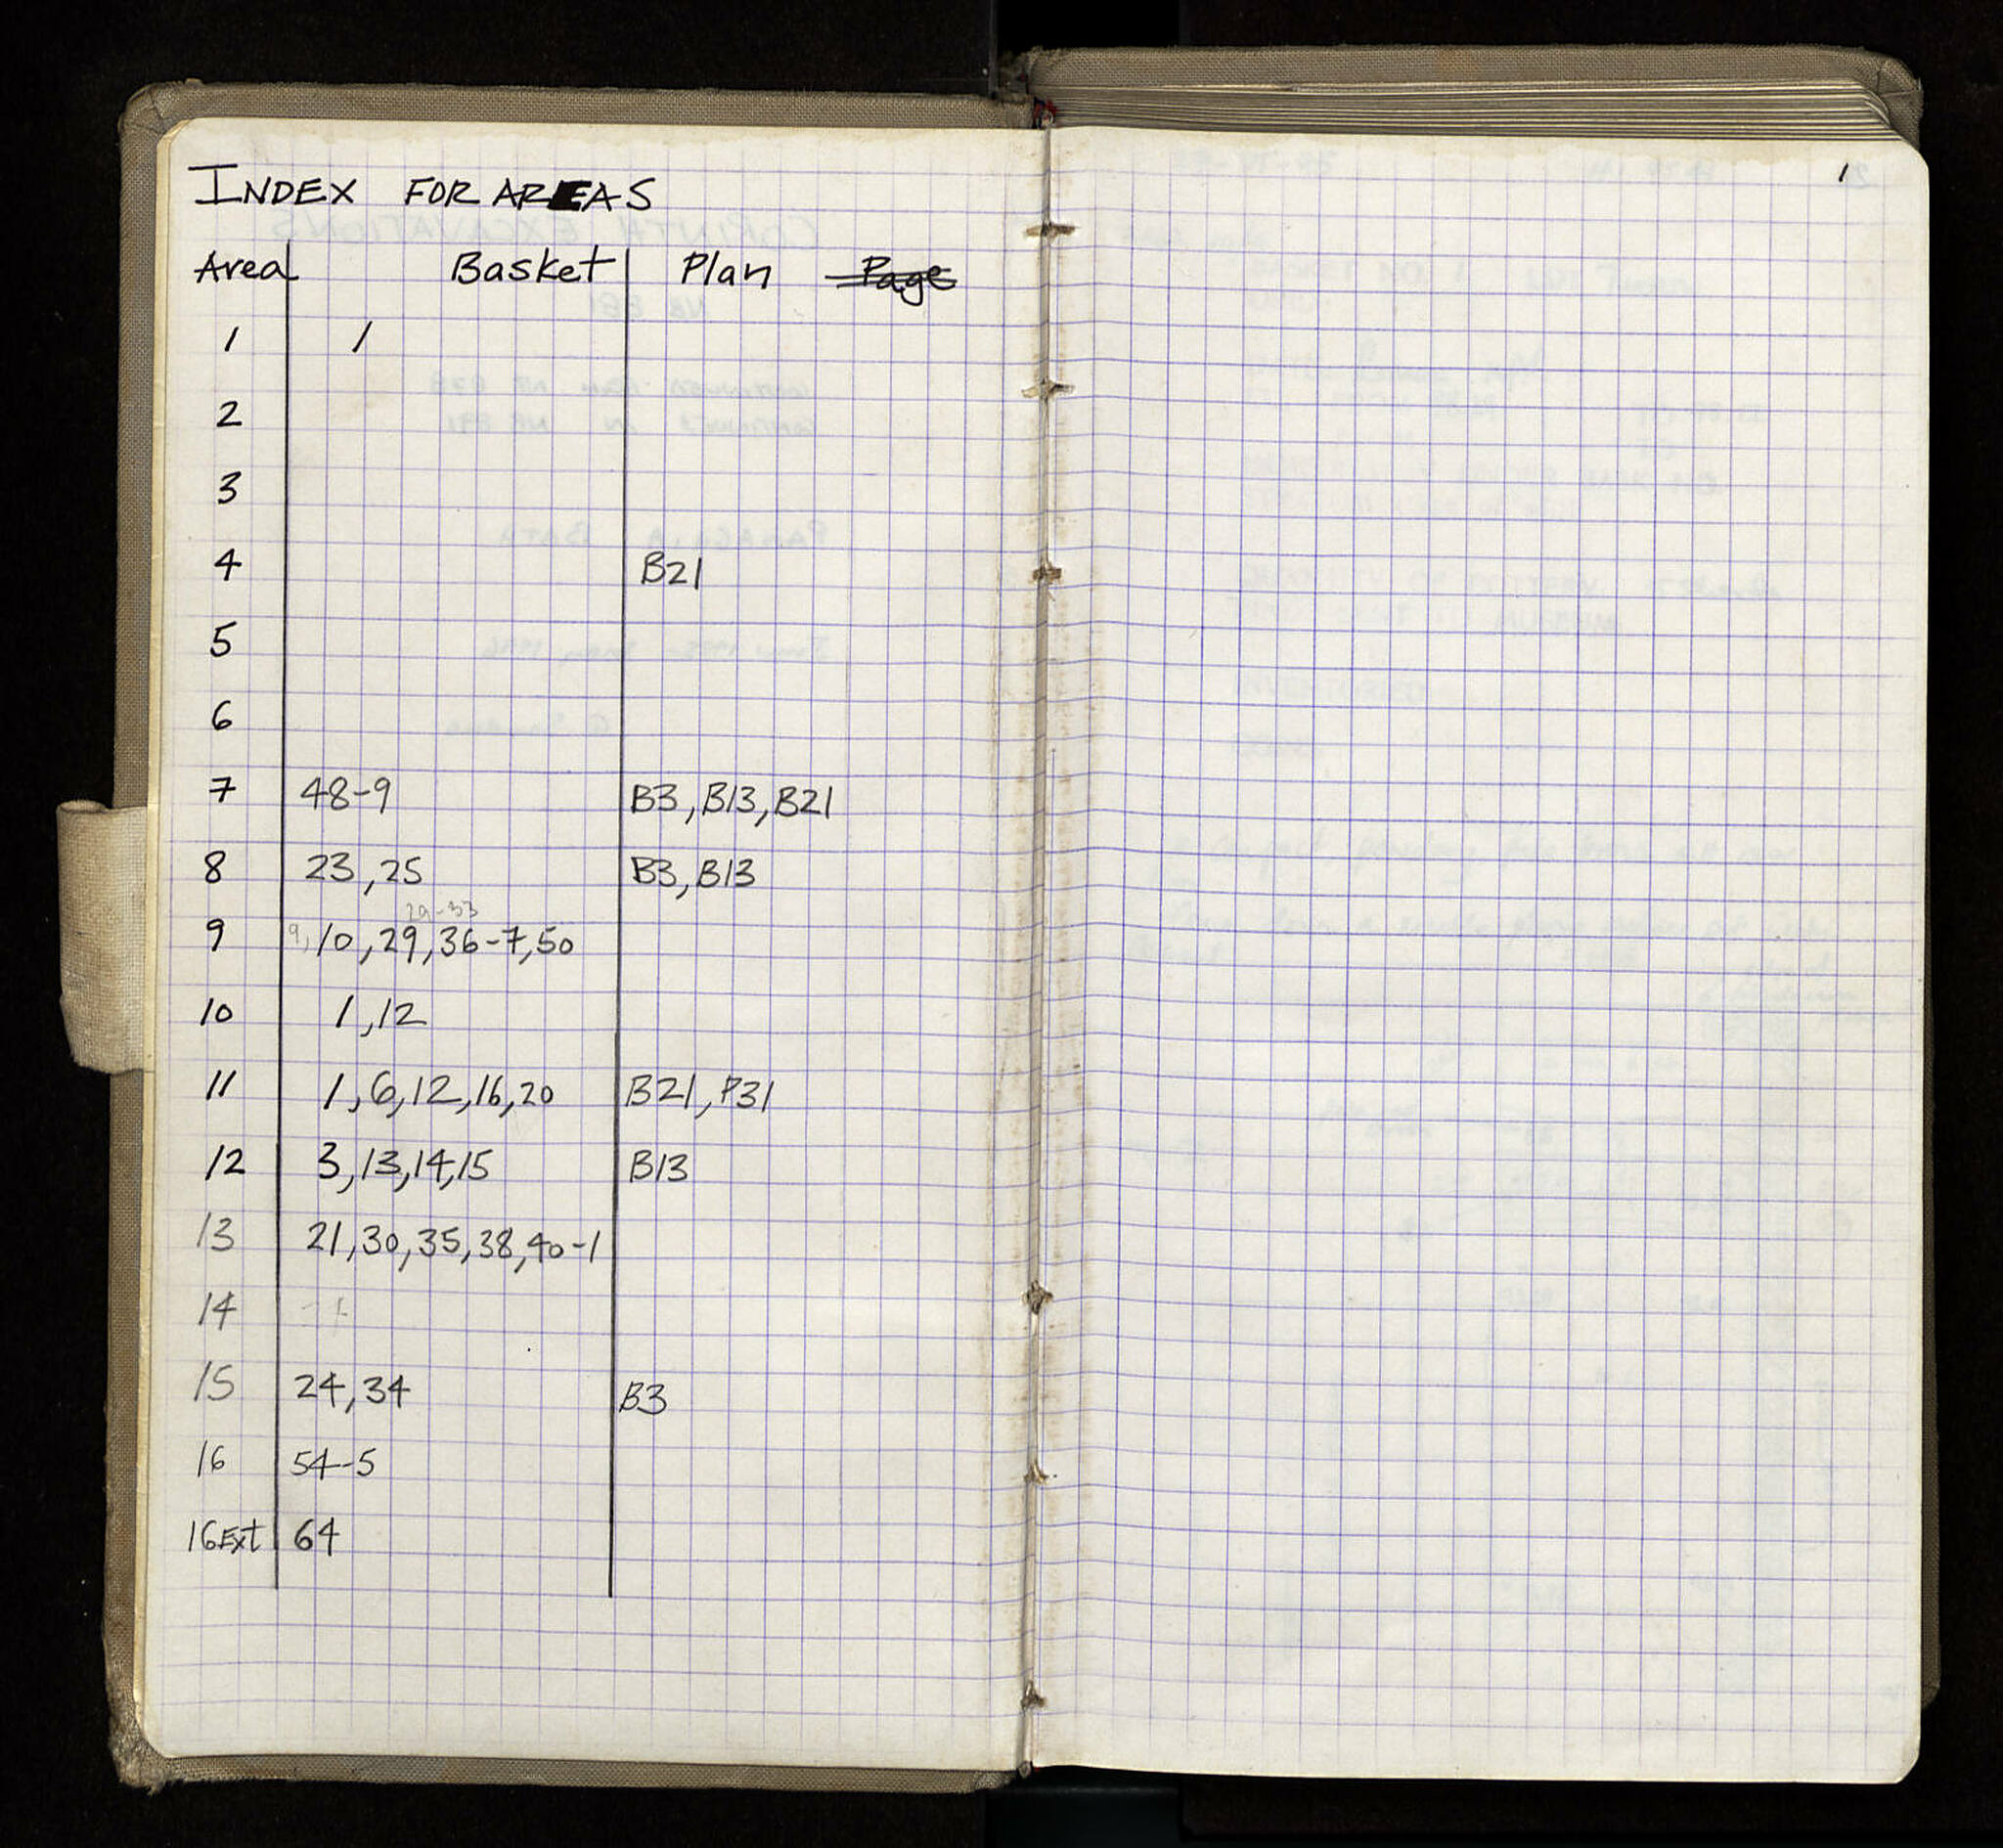 INDEX FOR AREAS
Area Basket Plan Page
1 1
2
3
4 B21
5
6
7 48-9 B3, B13, B21
8 23, 25 B3, B13
29-33
9 9, 10, 29, 36-7, 50
10 1, 12
11 1, 6, 12, 16, 20 B21, P31
12 3, 13, 14, 15 B13
13 21, 30, 35, 38, 40-1
14
15 24, 34 B3
16 54-5
16Ext 64
1